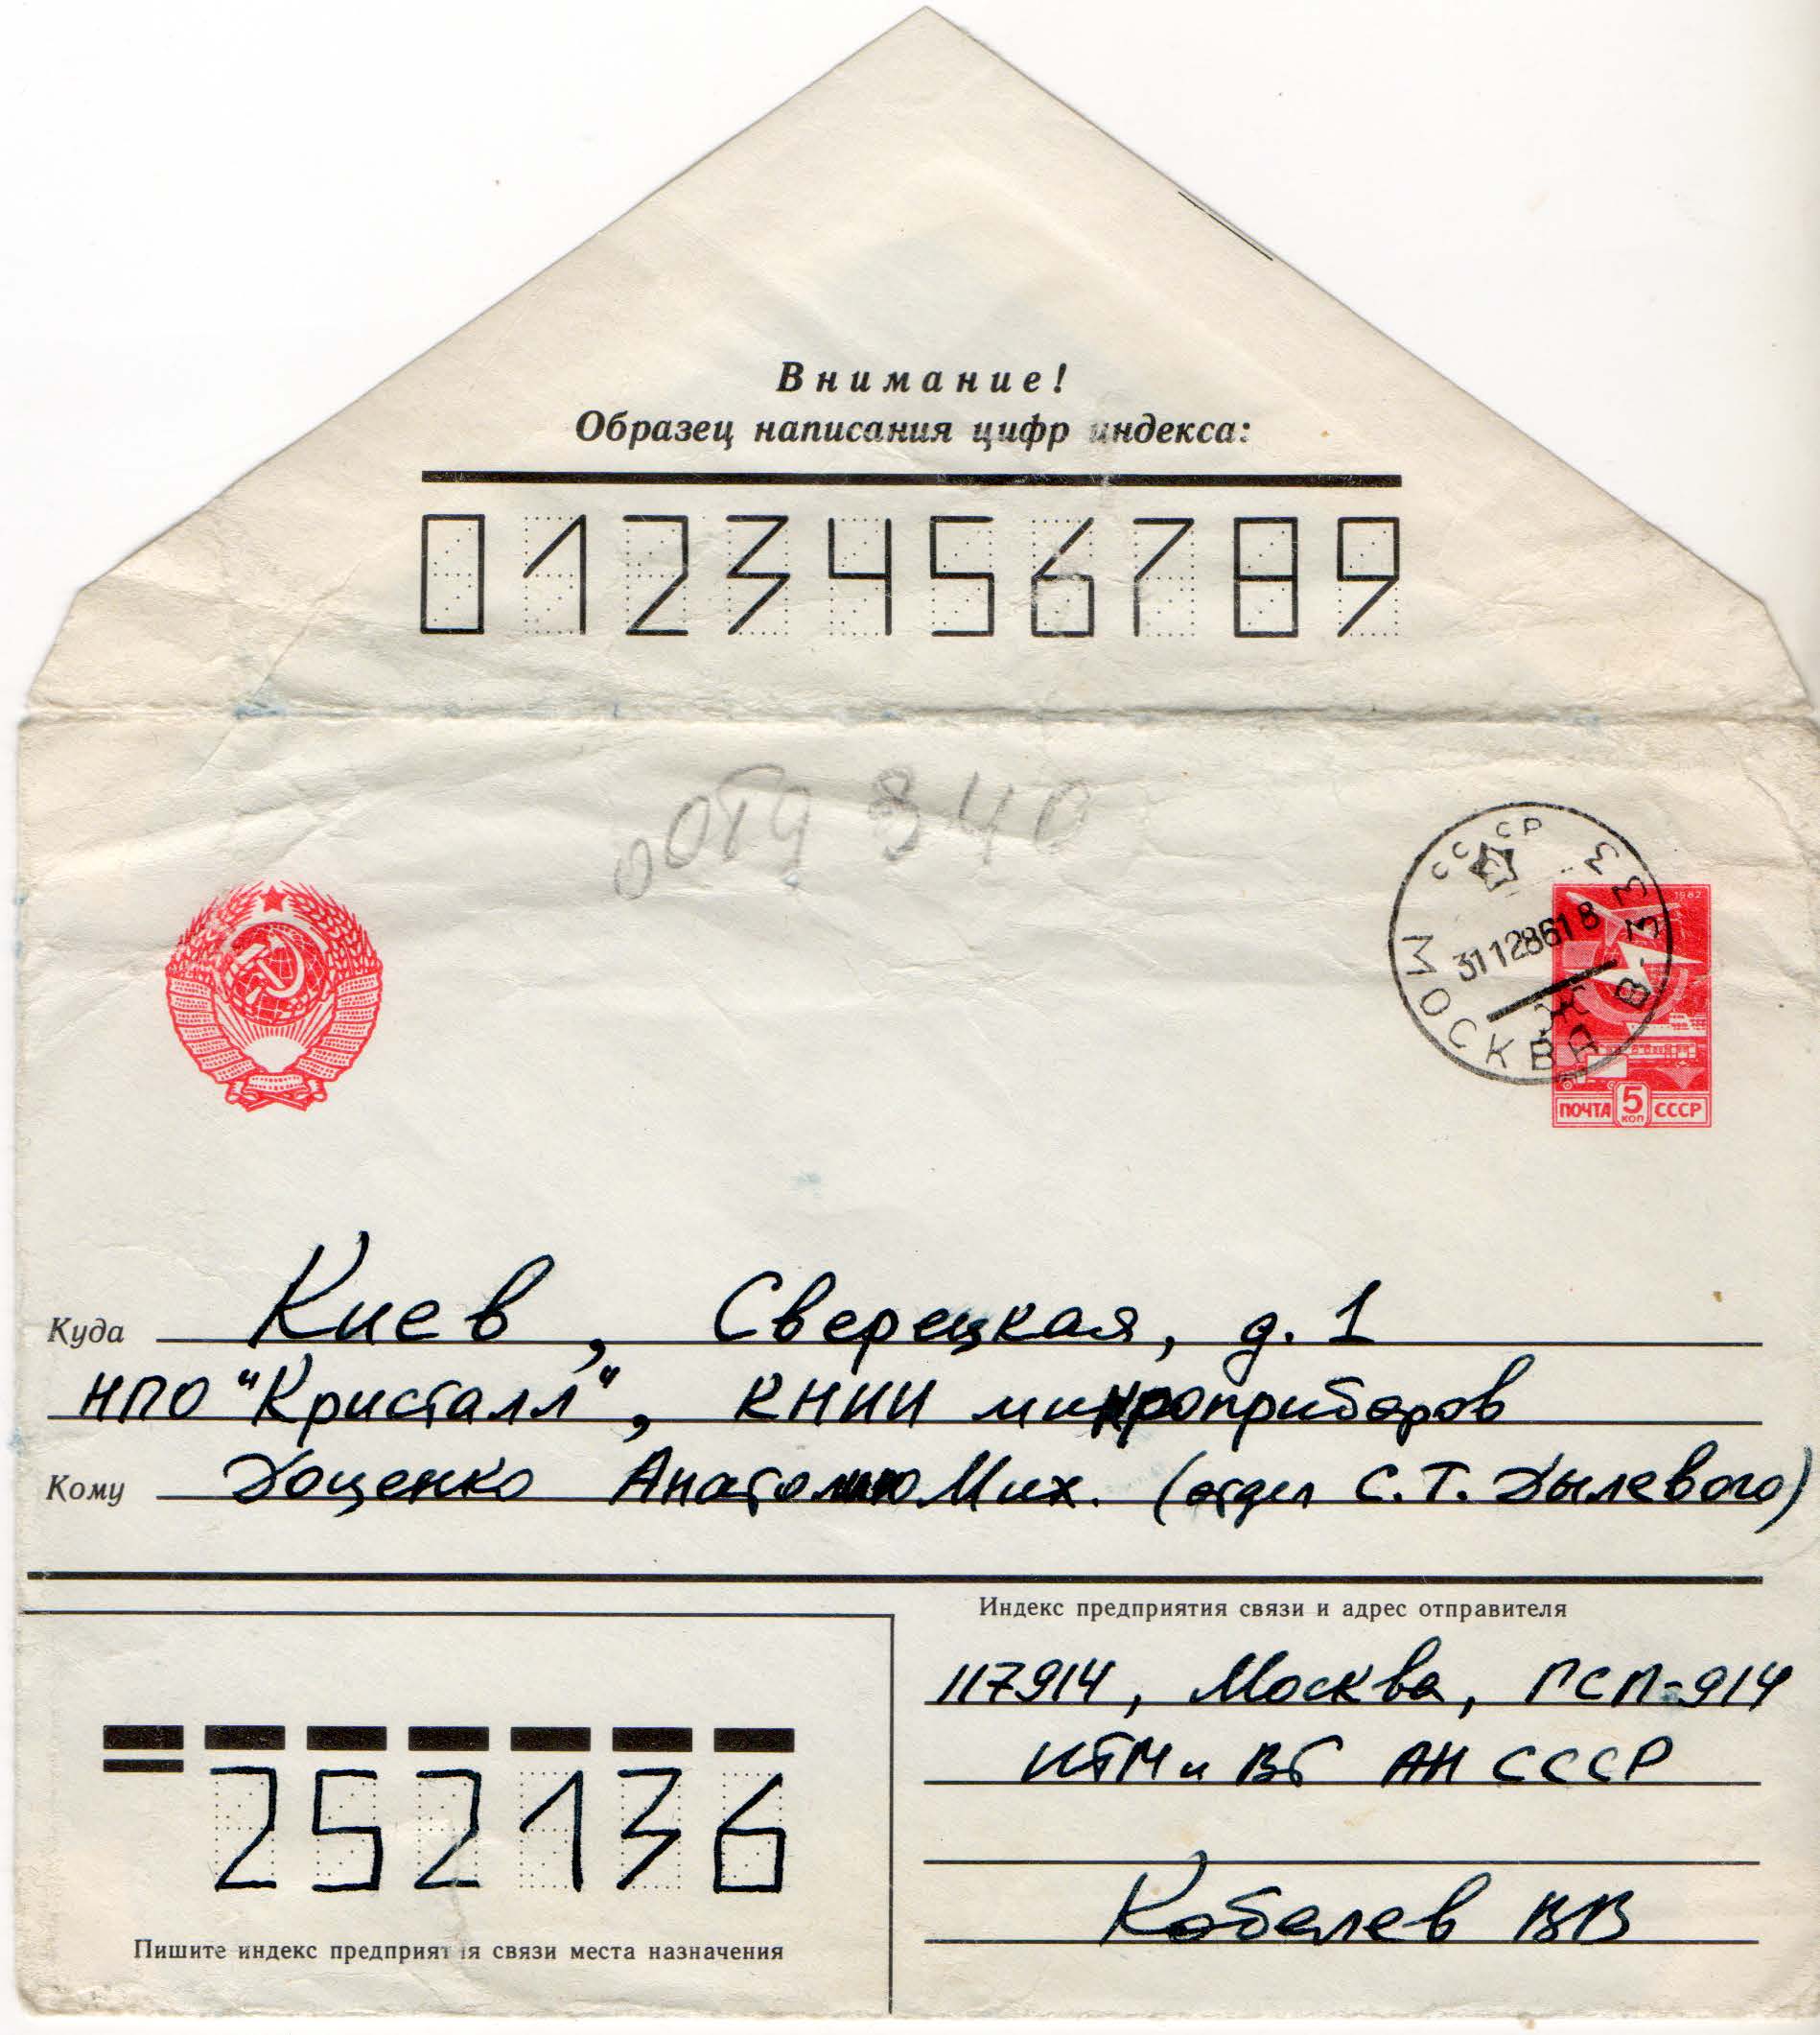 Внимание!
Образец написания цифр индекса:
0123456789
отд 340
СССР
МОСКВА В-333
31128618
Ж
1982
ПОЧТА 5 КОП СССР
Куда Киев, Сверецкая, д. 1
НПО "Кристалл", КНИИ микроприборов
Кому Доценко Анатолию Мих. (отдел С.Т. Дылевого)
Индекс предприятия связи и адрес отправителя
117914, Москва, ГСП-914
ИТМ и ВТ АН СССР
Кобелев ВВ
252136
Пишите индекс предприятия связи места назначения